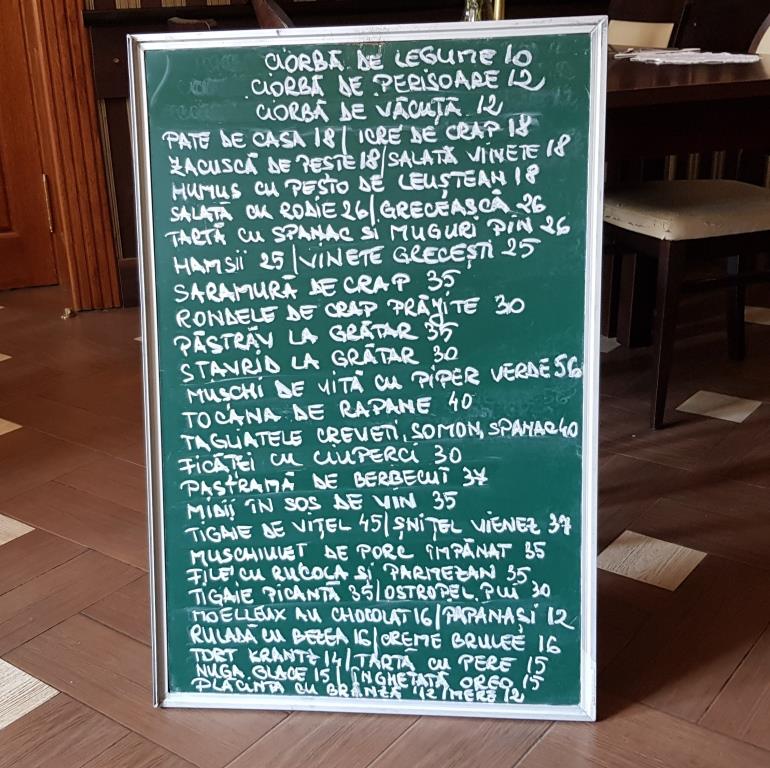 CIORBĂ DE LEGUME 10
CIORBĂ DE PERISOARE 12
CIORBĂ DE VĂCUȚĂ 12
PATE DE CASA 18 / ICRE DE CRAP 18
ZACUSCĂ DE PESTE 18 / SALATĂ VINETE 18
HUMUS CU PESTO DE LEUȘTEAN 18
SALATĂ CU RODIE 26 / GRECEASCĂ 26
TARTĂ CU SPANAC SI MUGURI PIN 26
HAMSII 25 / VINETE GRECEȘTI 25
SARAMURĂ DE CRAP 35
RONDELE DE CRAP PRĂJITE 30
PĂSTRĂV LA GRĂTAR 35
STAVRID LA GRĂTAR 30
MUSCHI DE VITĂ CU PIPER VERDE 56
TOCANA DE RAPANE 40
TAGLIATELE CREVETI, SOMON, SPANAC 40
FICĂȚEI CU CIUPERCI 30
PASTRAMĂ DE BERBECUT 37
MIDII ÎN SOS DE VIN 35
TIGAIE DE VIȚEL 45 / ȘNIȚEL VIENEZ 37
MUSCHIULET DE PORC ÎMPĂNAT 35
FILE CU RUCOLA SI PARMEZAN 35
TIGAIE PICANTĂ 35 / OSTROPEL PUI 30
MOELLEUX AU CHOCOLAT 16 / PAPANAȘI 12
RULADĂ CU BEZEA 16 / CREME BRULEÉ 16
TORT KRANTZ 14 / TARTĂ CU PERE 15
NUGA GLACE 15 / ÎNGHETATĂ OREO 15
PLACINTA CU BRÂNZĂ 12 / MERE 12